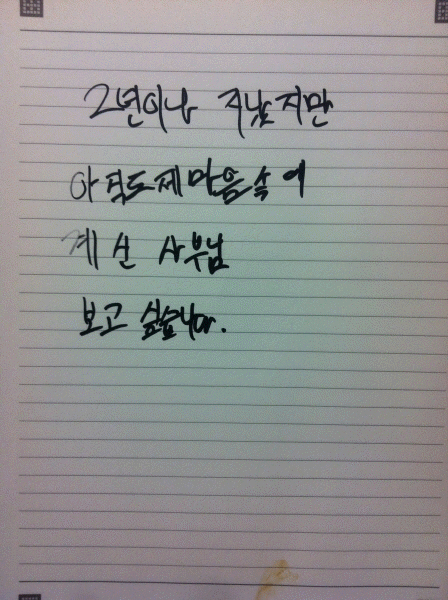 2년이나 지났지만
아직도 제 마음속에
계신 사부님
보고 싶습니다.